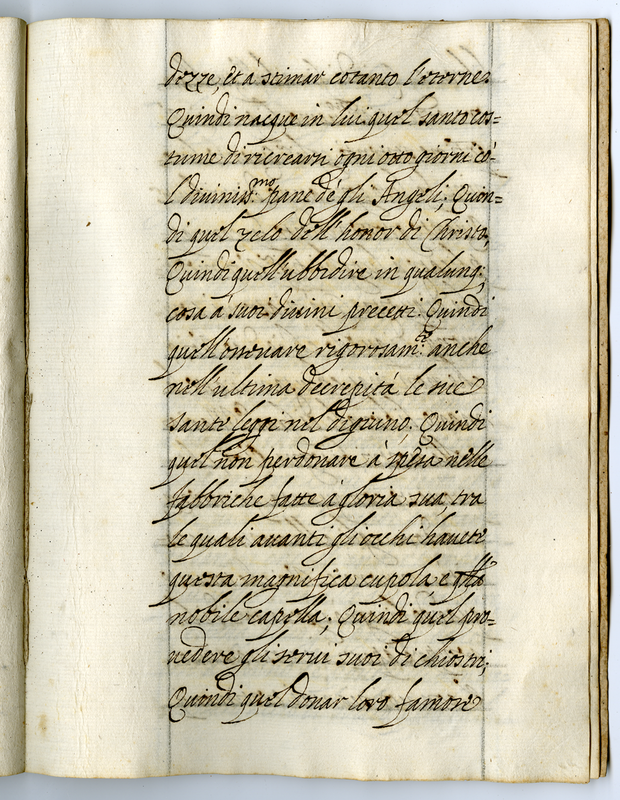 dezze, et à stimar cotanto l'eterne.
Quindi nacque in lui quel santo cos=
tume di ricrearsi ogni otto giorni có-
l diviniss.mo pane dégli Angeli; Quin=
di quel zelo dell'honor di Christo,
Quindi quell'ubbidire in qualunq;
cosa á suoi divini precetti. Quindi
quell'osseruare rigorosam.te anche
nell'ultima decrepitá le sue
sante leggi nel digiuno. Quindi
quel non perdonare à spesa nelle
fabbriche fatte á gloria sua, tra
le quali auanti gli occhi hauete
questa magnifica cupola, e q'lla
nobile capella; Quindi quel pro=
uedere gli serui suoi di chiostri;
Quindi quel donar loro